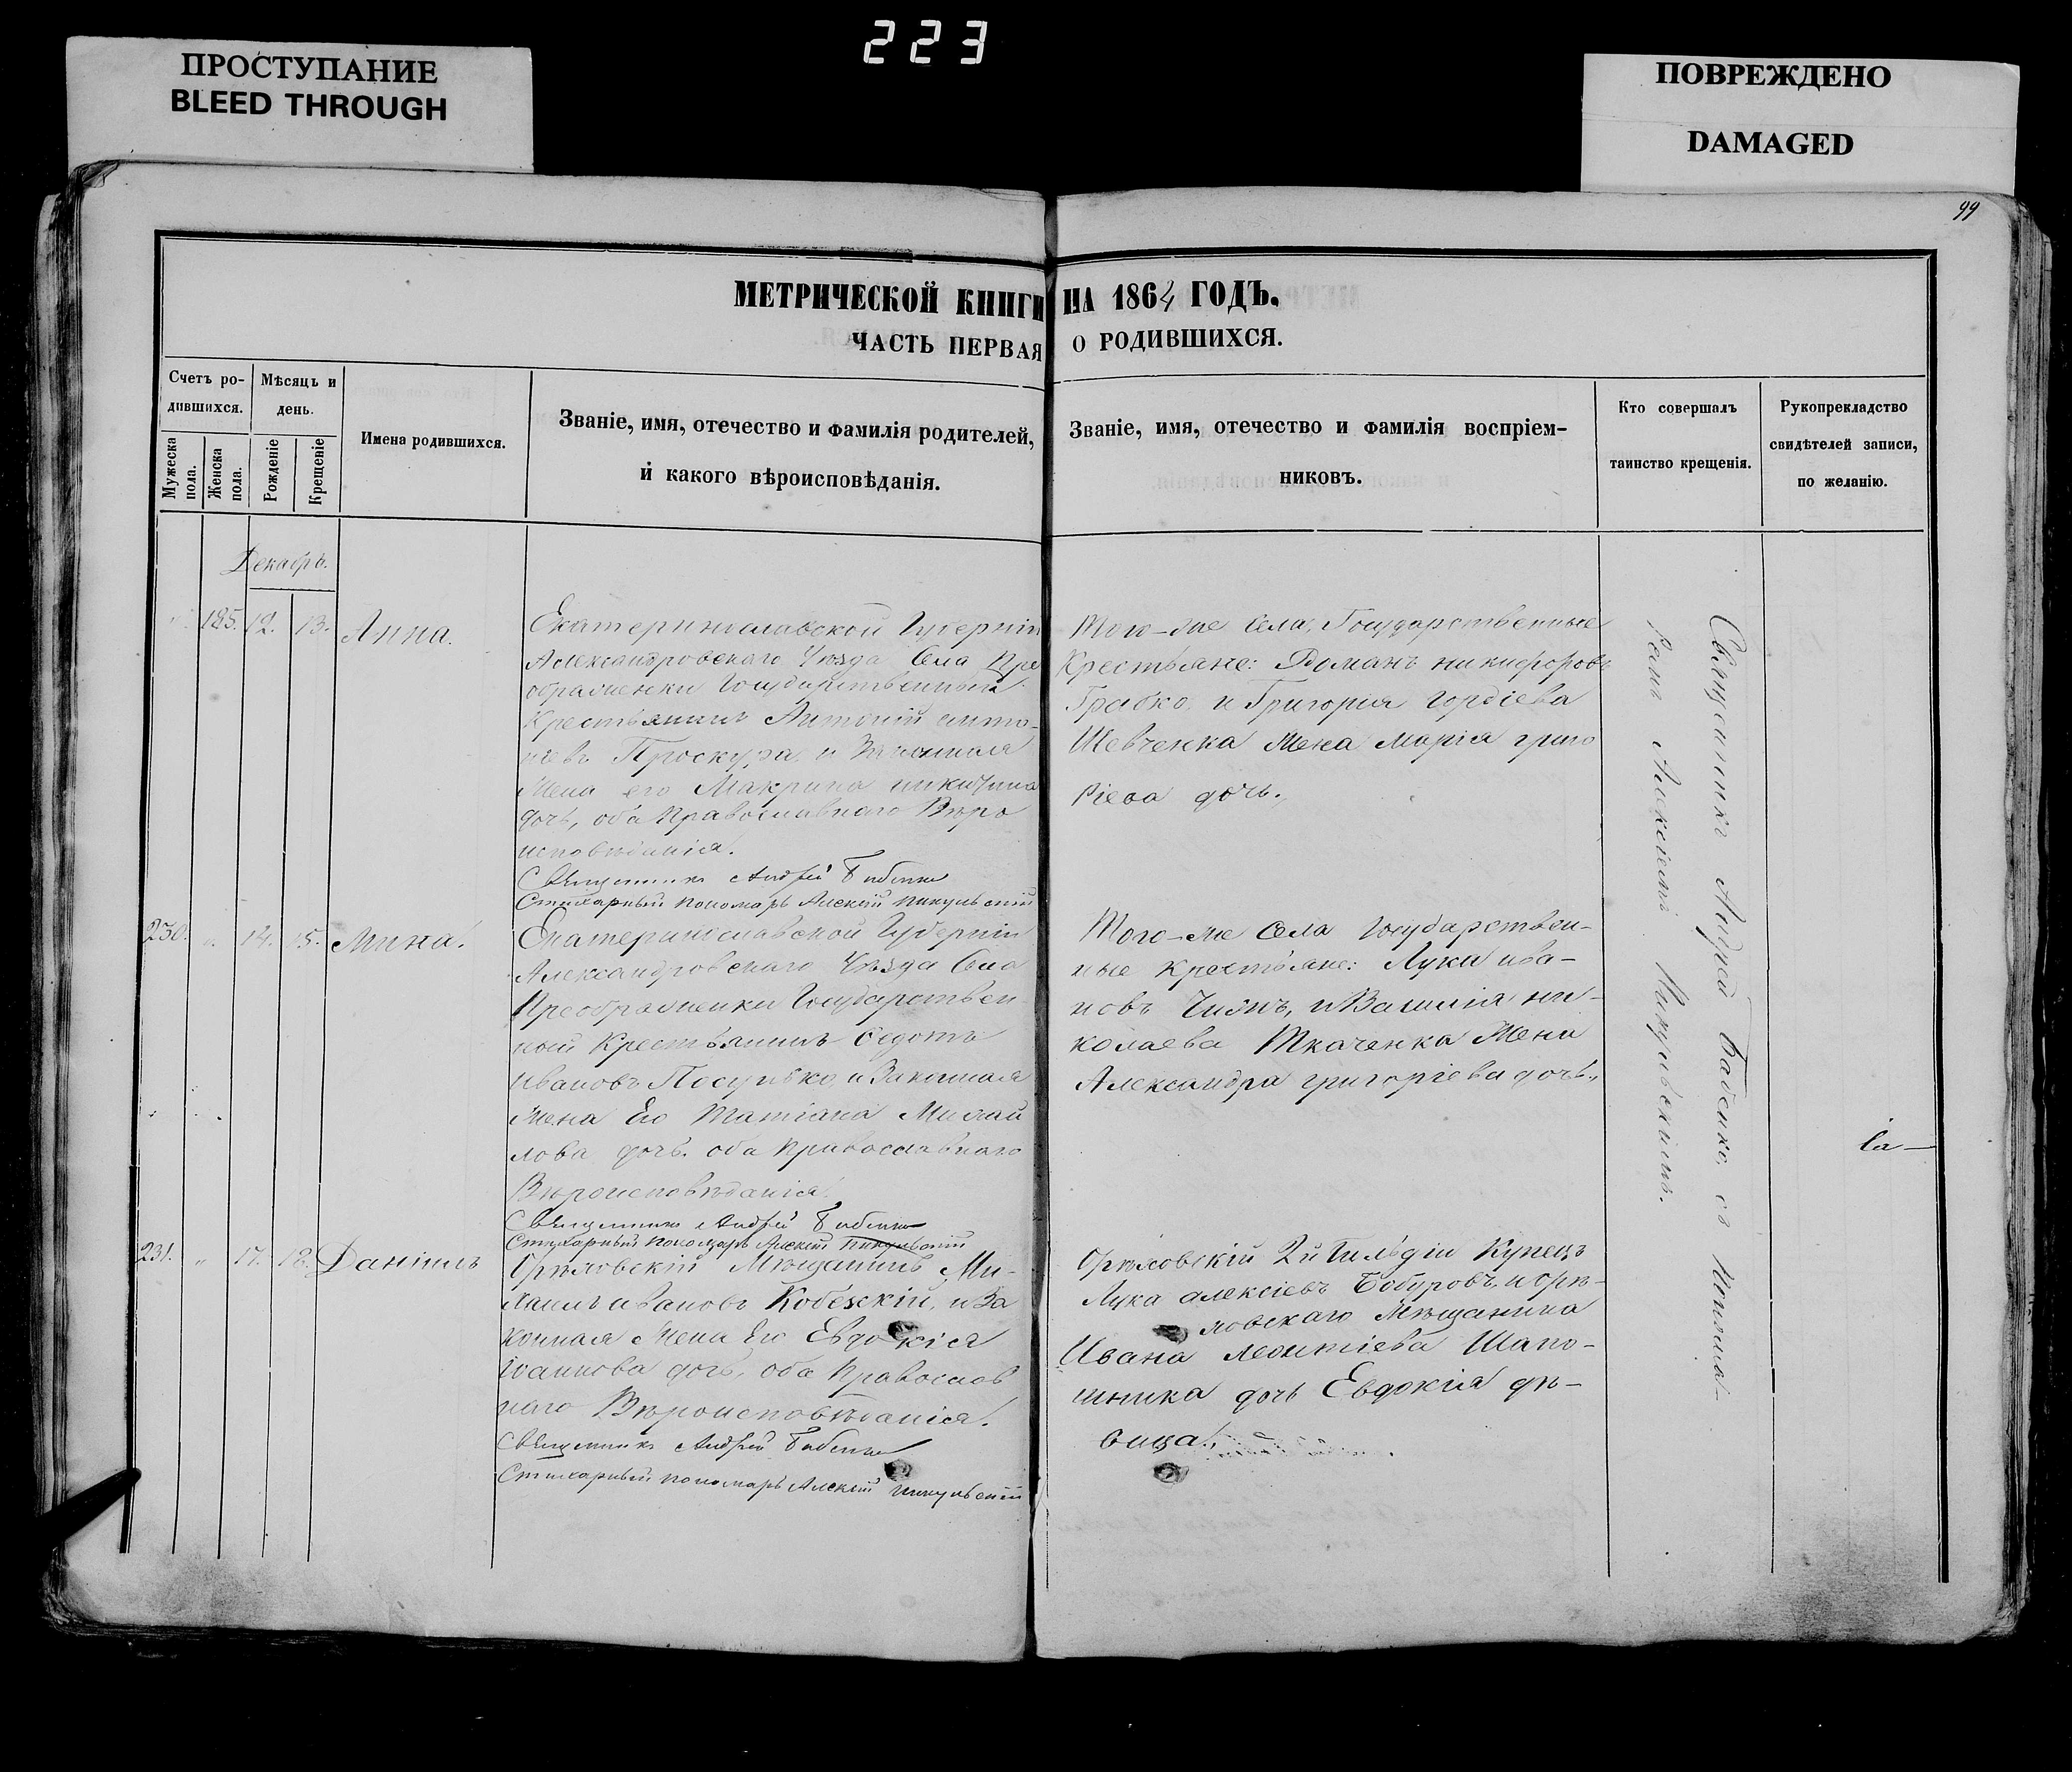 223
ПРОСТУПАНИЕ
BLEED THROUGH
ПОВРЕЖДЕНО
DAMAGED
99
МЕТРИЧЕСКОЙ КНИГИ НА 1864 ГОДЪ.
ЧАСТЬ ПЕРВАЯ О РОДИВШИХСЯ.
Счетъ ро-
дившихся.
Мужеска
пола.
Женска
пола.
Мѣсяцъ и
день.
Рожденіе
Крещеніе
Имена родившихся.
Званіе, имя, отечество и фамилія родителей,
и какого вѣроисповѣданія.
Званіе, имя, отечество и фамилія воспріем-
никовъ.
Кто совершалъ
таинство крещенія.
Рукопрекладство
свидѣтелей записи,
по желанію.
Декабрь.
185. 12. 13. Анна.
Екатеринославской Губерніи
Александровскаго Уѣзда Села Пре
ображенки Государственный
Крестьянинъ Антоній анто-
ніевъ Проскура и Законная
Жена его Макрина никитина
дочь, оба Православнаго Вѣро
исповѣданія.
Священникъ Андрей Бабенко
Стихарный пономарь Алексій Пикульскій
Того-же Села, Государственные
Крестьяне: Романъ никифоровъ
Грабко, и Григорія гордіева
Шевченка жена Марія григо
ріева дочь.
230. " 14. 15. Мина.
Екатеринославской Губерніи
Александровскаго Уѣзда Села
Преображенки Государствен-
ный Крестьянинъ Федотъ
Ивановъ и Законная
Жена Его Татіана Михай
лова дочь. оба Православнаго
Вѣроисповѣданія.
Священникъ Андрей Бабенко
Стихарный пономарь Алексій Пикульскій
Того-же Села Государствен-
ные крестьяне: Лука ива-
новъ и Василія ни-
колаева Ткаченка Жена
Александра григоріева дочь.
231. " 17. 18. Даніилъ
Орѣховскій Мѣщанинъ Ми-
хаилъ ивановъ Кобезскій, и За
конная Жена Его Евдокія
Іоаннова дочь, оба Православ
наго Вѣроисповѣданія.
Священникъ Андрей Бабенко
Стихарный пономарь Алексій Пикульскій
Орѣховскій 2й Гильдіи Купецъ
Лука алексіевъ Бобуровъ, и Орѣ-
ховскаго Мѣщанина
Ивана леонтіева Шапо-
шника дочь Евдокія дѣ-
вица.
Священникъ Андрей Бабенко, съ Понома-
ремъ Алексіемъ Пикульскимъ.